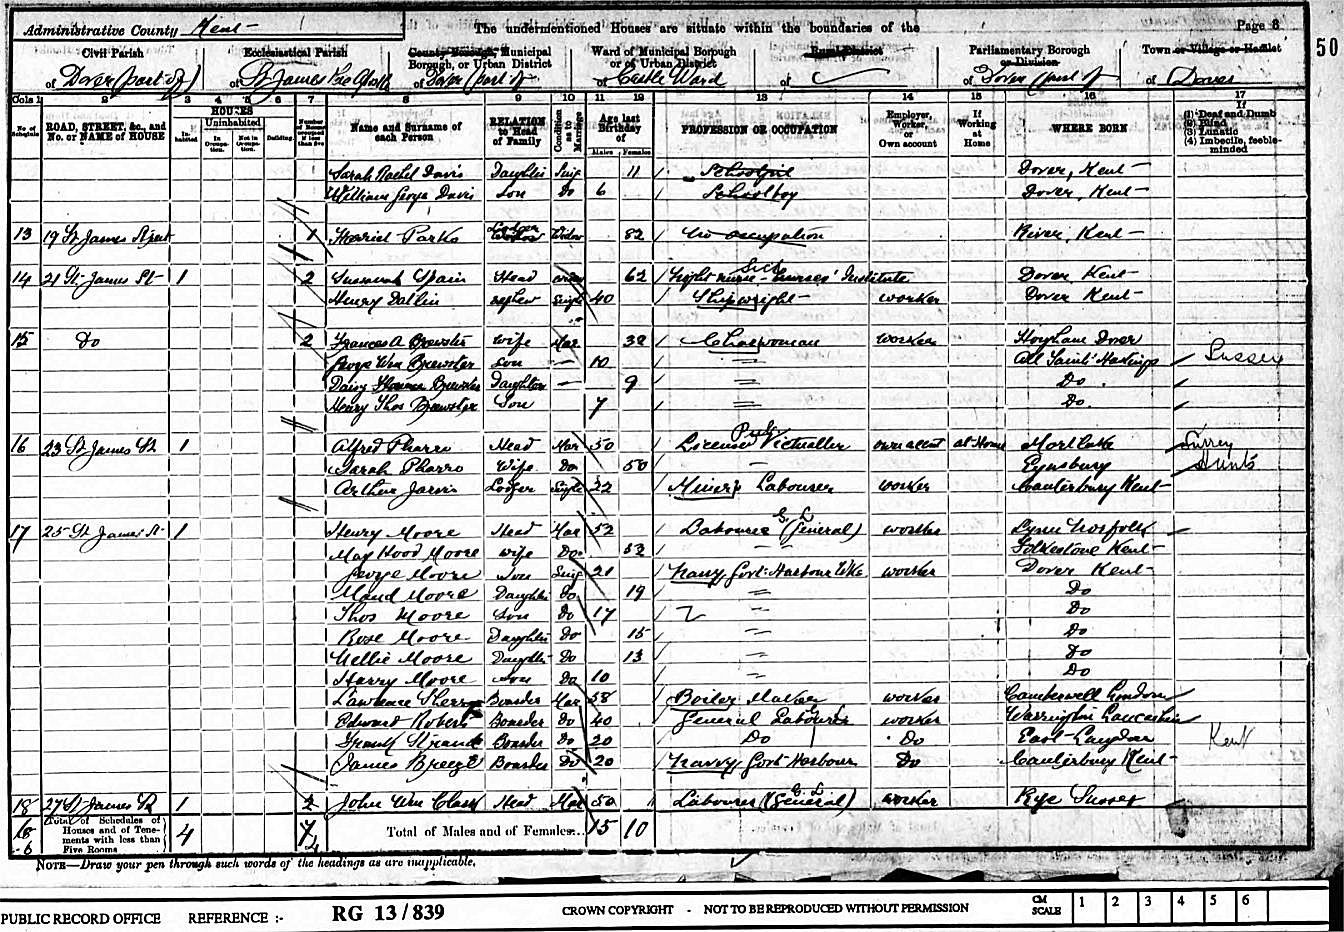 Administrative County Kent
The undermentioned Houses are situate within the boundaries of the
Page 8
50
Civil Parish
of Dover (part of)
Ecclesiastical Parish
of St James the
County Borough, Municipal Borough, or Urban District
of Dover (part of
Ward of Municipal Borough or of Urban District
of Castle Ward
Rural District
of
Parliamentary Borough or Division
of Dover (part of
Town or Village or Hamlet
of Dover
Cols 1 2 3 4 5 6 7 8 9 10 11 12 13 14 15 16 17
No. of Schedule
ROAD, STREET, &c., and No. or NAME of HOUSE
HOUSES
Inhabited
Uninhabited
In Occupation.
Not in Occupation.
Building.
Number of Rooms occupied if less than five
Name and Surname of each Person
RELATION to Head of Family
Condition as to Marriage
Age last Birthday of
Males Females
PROFESSION OR OCCUPATION
Employer, Worker, or Own account
If Working at Home
WHERE BORN
If (1) Deaf and Dumb (2) Blind (3) Lunatic (4) Imbecile, feeble-minded
Sarah Rachel Davis Daughter Sing 11 Schoolgirl Dover, Kent
William George Davis Son Do 6 Schoolboy Dover, Kent
13 19 St James St part 1 Harriet Parks Lodger Widow 82 No occupation River, Kent
14 21 St James St 1 2 Susannah Spain Head 62 Night nurse Sick nurses' Institute Dover Kent
Henry nephew Single 40 Shipwright worker Dover Kent
15 Do 2 Frances A Brewster Wife Mar 32 Charwoman worker Hougham Dover
George Wm Brewster Son — 10 All Saints Hastings Sussex
Daisy Brewster Daughter — 9 Do
Henry Thos Brewster Son 7 Do
16 23 St James St 1 Alfred Pharro Head Mar 50 Licensed Victualler Pub own accnt at Home Mortlake Surrey
Sarah Pharro Wife Do 50 Eynsbury Hunts
Arthur Jarvis Lodger Single 22 Miner's Labourer worker Canterbury Kent
17 25 St James St 1 Henry Moore Head Mar 52 Labourer (General) G. L worker Lynn Norfolk
May Hood Moore wife Do 52 Folkestone Kent
George Moore Son Sing 21 Navvy Govt Harbour Wks worker Dover Kent
Maud Moore Daughter Do 19 Do
Thos Moore Son Do 17 Do
Rose Moore Daughter Do 15 Do
Nellie Moore Daughter Do 13 Do
Harry Moore Son Do 10 Do
Lawrence Boarder Mar 58 Boiler Maker worker Camberwell London
Edward Robert Boarder Do 40 General Labourer worker Warrington Lancashire
Frank Boarder Do 20 Do Do East Langdon Kent
James Breeze Boarder Do 20 Navvy Govt Harbour Do Canterbury Kent
18 27 St James St 1 2 John Wm Clark Head Mar 50 Labourer (General) G. L worker Rye Sussex
6
Total of Schedules of Houses and of Tenements with less than Five Rooms
4
Total of Males and of Females... 15 10
NOTE—Draw your pen through such words of the headings as are inapplicable.
PUBLIC RECORD OFFICE REFERENCE :- RG 13 / 839 CROWN COPYRIGHT - NOT TO BE REPRODUCED WITHOUT PERMISSION CM SCALE 1 2 3 4 5 6